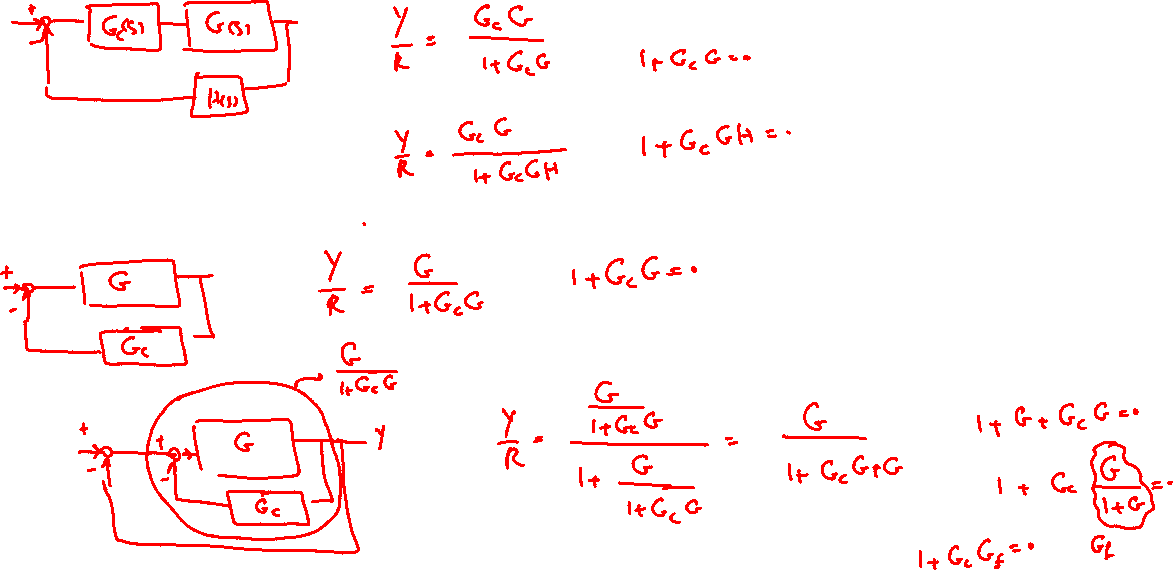 + - G_c(s) G(s) H(s)
Y/R = G_c G / (1 + G_c G) 1 + G_c G = 0
Y/R = G_c G / (1 + G_c G H) 1 + G_c G H = 0
+ - G G_c
Y/R = G / (1 + G_c G) 1 + G_c G = 0
G / (1 + G_c G)
+ - + - G G_c Y
Y/R = (G / (1 + G_c G)) / (1 + G / (1 + G_c G)) = G / (1 + G_c G + G)
1 + G + G_c G = 0
1 + G_c G / (1 + G) = 0
1 + G_c G_f = 0 G_f